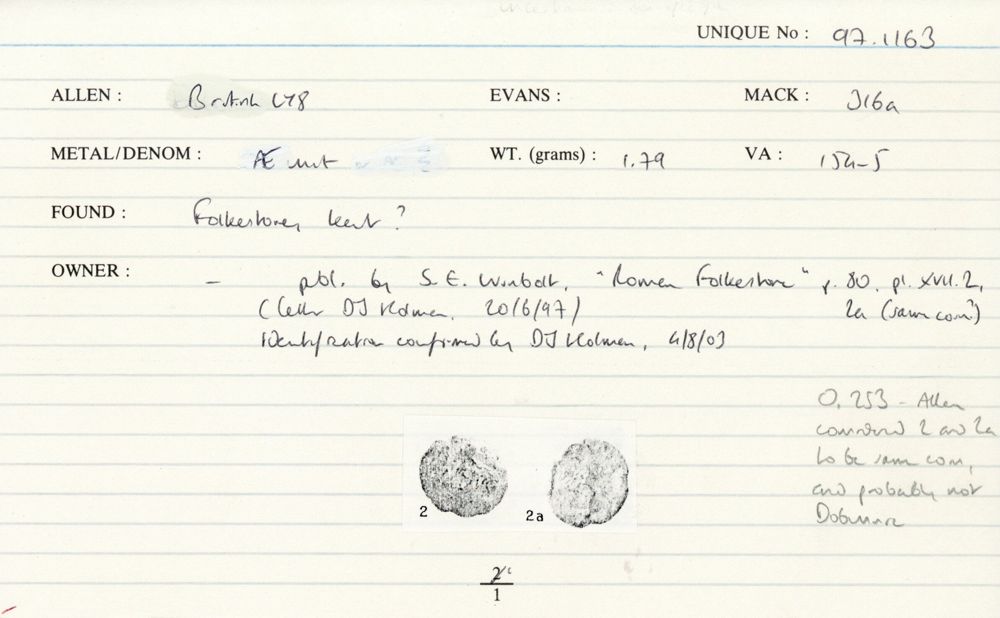 UNIQUE No : 97.1163
ALLEN : British LY8 EVANS : MACK : 316a
METAL/DENOM : Æ unit WT. (grams) : 1.79 VA : 154-5
FOUND : Folkestone, Kent ?
OWNER : – publ. by S. E. Winbolt, "Roman Folkestone" p. 80, pl. XVII.2,
(letter DJ Holman, 20/6/97) 2a (same coin)
identification confirmed by DJ Holman, 4/8/03
O. 253 - Allen
considered 2 and 2a
to be same coin,
and probably not
Dobunnic
2 2a
2
1